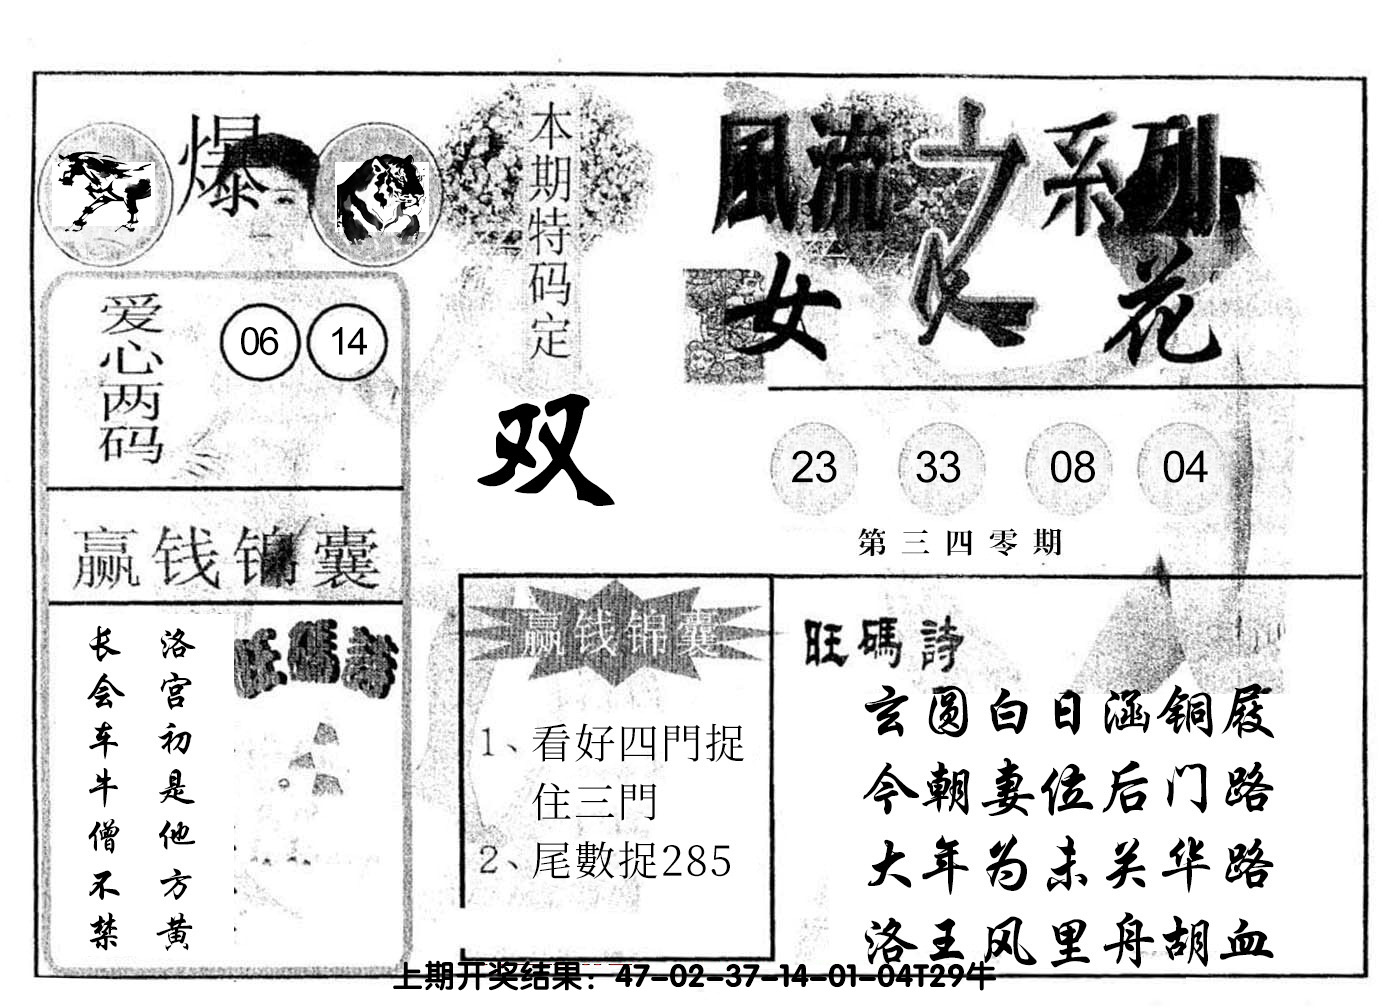 爆
爱心两码
06 14
赢钱锦囊
洛宫初是他方黄
长会车牛僧不禁
旺碼詩
本期特码定
双
風流之系列
女人花
23 33 08 04
第三四零期
赢钱锦囊
1、看好四門捉
住三門
2、尾數捉285
旺碼詩
玄圆白日涵铜屐
今朝妻位后门路
大年为未关华路
洛王风里舟胡血
上期开奖结果：47-02-37-14-01-04T29牛